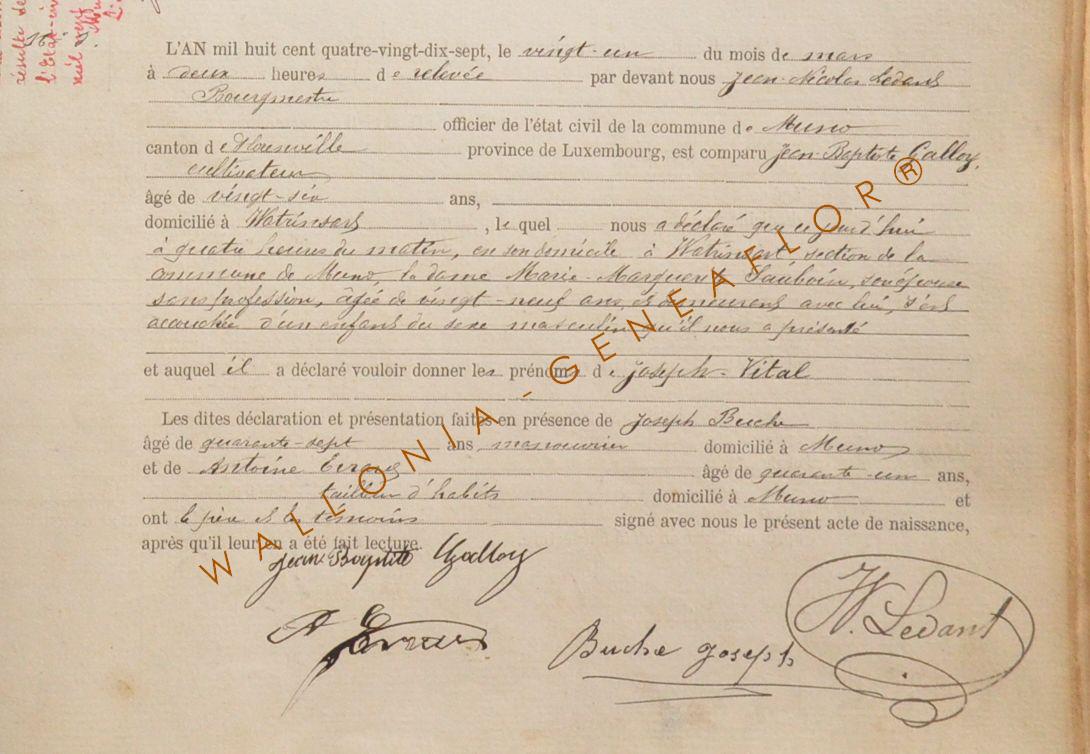 L'AN mil huit cent quatre-vingt-dix-sept, le vingt-un du mois de mars
à deux heures de relevée par devant nous Jean-Nicolas Ledant
Bourgmestre
officier de l'état civil de la commune de Muno
canton de Florenville province de Luxembourg, est comparu Jean-Baptiste Galloy,
cultivateur
âgé de vingt-six ans,
domicilié à Watrinsart, lequel nous a déclaré que cejourd'hui
à quatre heures du matin, en son domicile à Watrinsart section de la
commune de Muno, la dame Marie-Marguerite Sauboin, son épouse
sans profession, âgée de vingt-neuf ans, et demeurant avec lui, s'est
accouchée d'un enfant du sexe masculin qu'il nous a présenté
et auquel il a déclaré vouloir donner les prénoms de Joseph-Vital
Les dites déclaration et présentation faites en présence de Joseph Buche
âgé de quarante-sept ans manouvrier domicilié à Muno
et de Antoine Evrard âgé de quarante-un ans,
tailleur d'habits domicilié à Muno et
ont le père et les témoins signé avec nous le présent acte de naissance,
après qu'il leur en a été fait lecture.
Jean-Baptiste Galloy
A Buche Joseph N. Ledant
WALLONIA-GENEAFLOR®